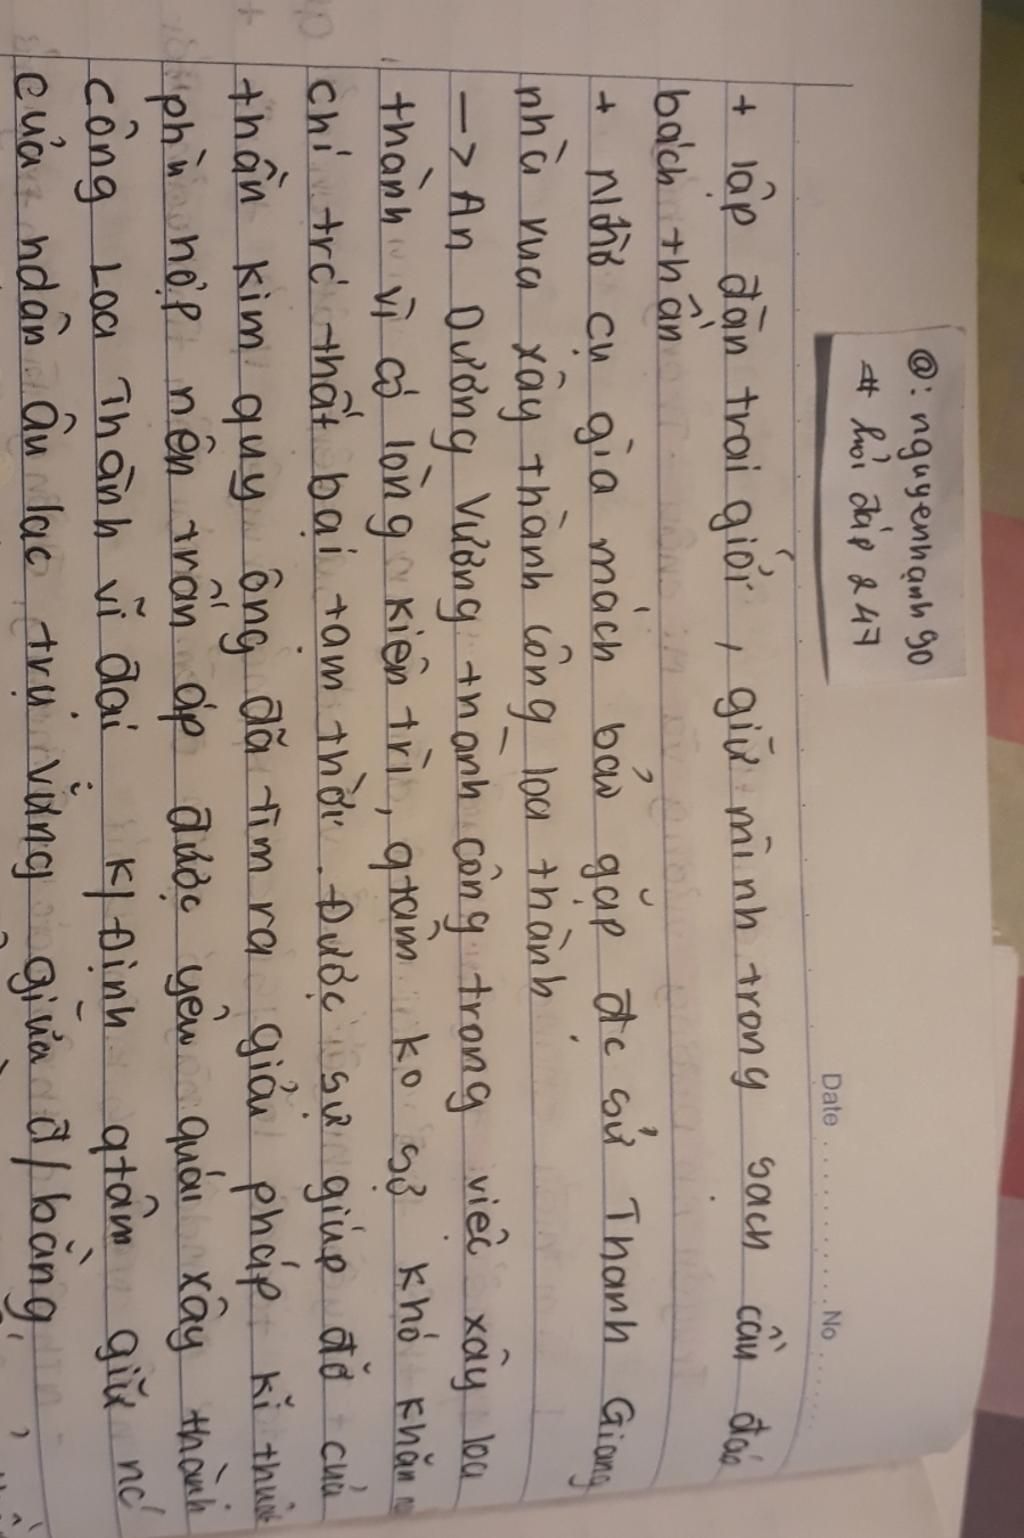 @: nguyenhạnh90
# hỏi đáp 247
Date ............ No ......
+ lập đàn trai giới, giữ mình trong sạch cầu đảo
bách thần
+ Nhờ cụ già mách bảo gặp đc sứ Thanh Giang
nhà vua xây thành công loa thành
-> An Dương Vương thành công trong việc xây loa
thành vì có lòng kiên trì, qtâm ko sợ khó khăn
chí trc thất bại tạm thời. Được sự giúp đỡ của
thần kim quy ông đã tìm ra giải pháp kĩ thuật
phù hợp nên trấn áp được yêu quái xây thành
công Loa Thành vĩ đại k/định qtâm giữ nc
của ndân âu lạc trụ vững giữa đ/bằng